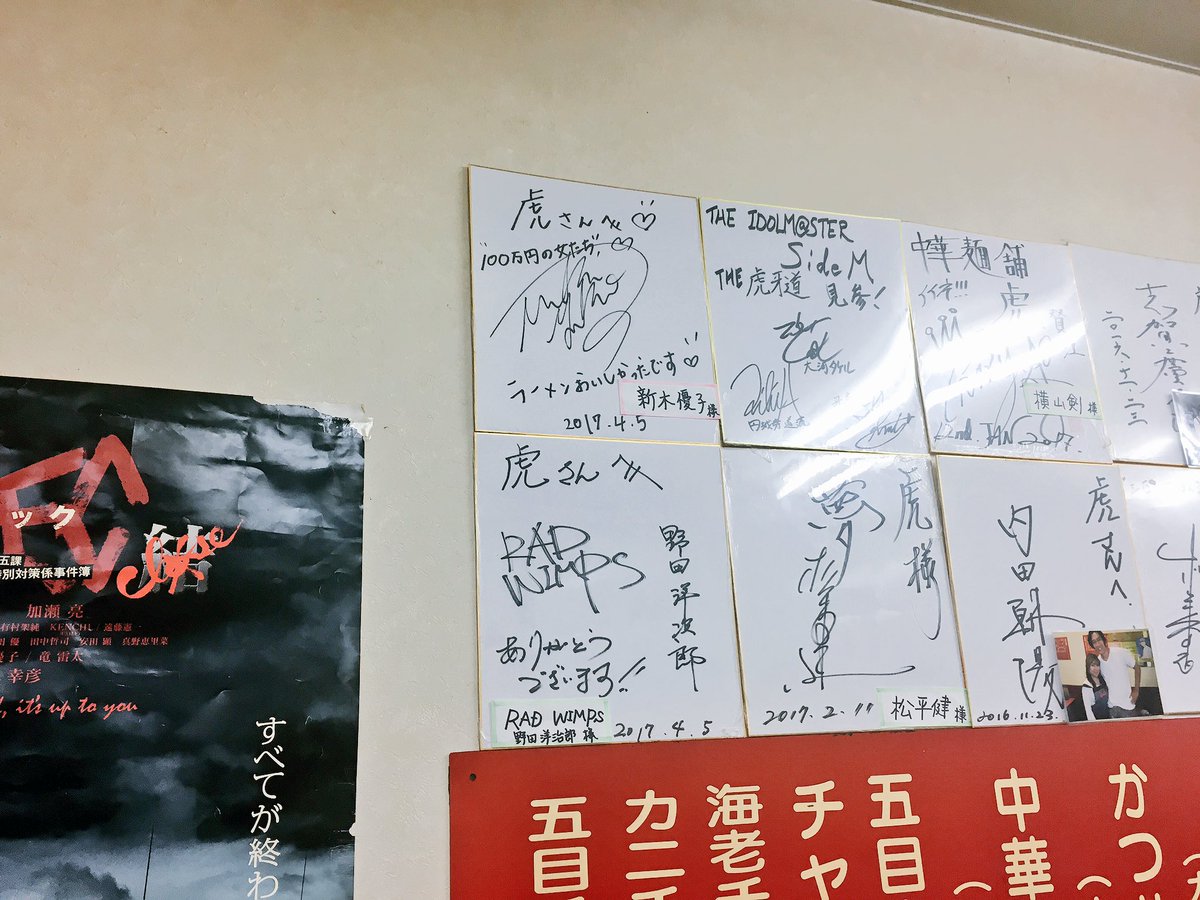 虎さんへ♡
"100万円の女たち"♡
ラーメンおいしかったです♡
新木優子様
2017.4.5
THE IDOLM@STER
SideM
THE 虎牙道 見参!
大河タケル
円城寺道流
中華麺舗
虎
イイネ!!!
横山剣様
22nd. JAN 2017.
志賀廣
二〇一六.十二.二三
虎さんへ
RAD
WIMPS
野田洋次郎
ありがとう
ございます!!
RAD WIMPS
野田洋治郎様
2017.4.5
虎様
2017.2.11
松平健様
虎さんへ.
2016.11.23.
ック
五課
別対策係事件簿
結
加瀬 亮
有村架純 KENCHI / 遠藤憲一
優 田中哲司 安田 顕 真野恵里菜
優子 / 竜 雷太
幸彦
, it's up to you
すべてが終わ
かつ
中華
五目
チャ
海老
カニ
五目